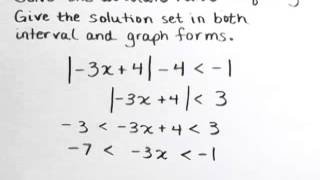 Give the solution set in both
interval and graph forms.
|-3x+4|-4 < -1
|-3x+4| < 3
-3 < -3x+4 < 3
-7 < -3x < -1